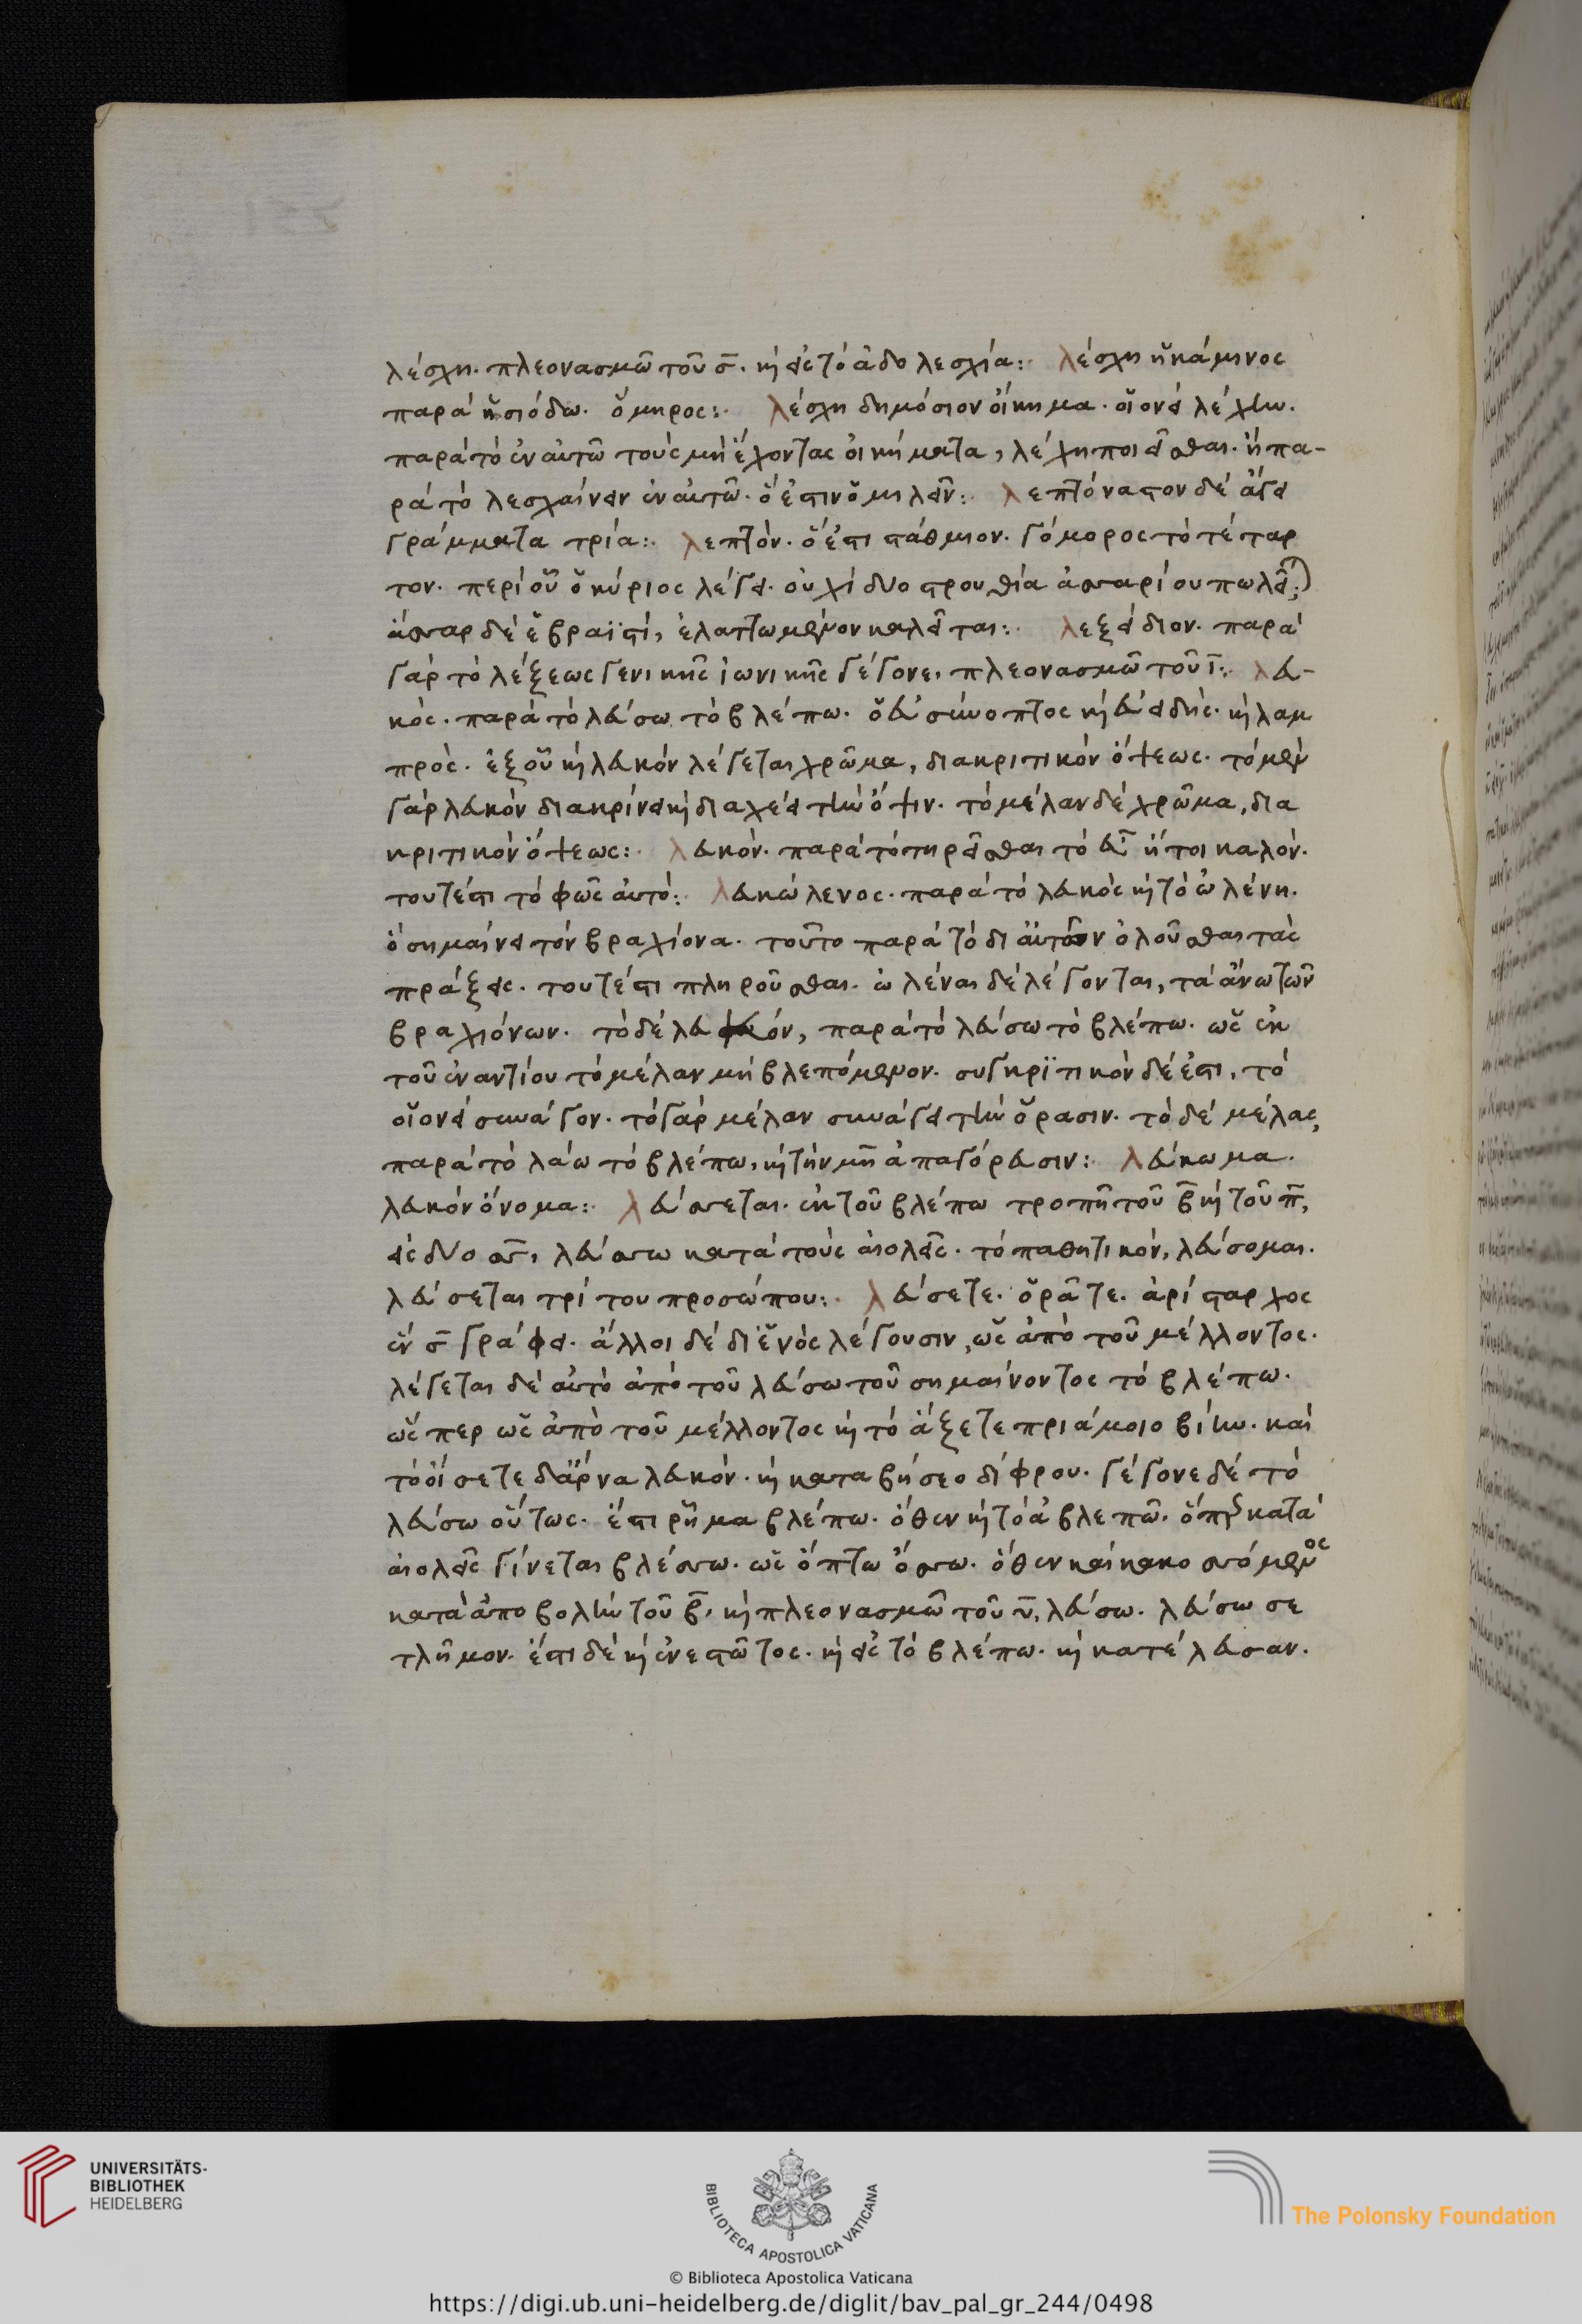 λέσχη. πλεονασμῶ τοῦ σ̄. κὶ εἰς τὸ ἀδολεσχία:. λέσχη ἡ κάμινος
παρὰ ἡσιόδω. ὅμηρος:. λέσχη δημόσιον οἴκημα. οἱονεὶ λέχην.
παρὰ τὸ ἐν αὐτῶ τοὺς μὴ ἔχοντας οἰκήματα, λέχη ποιεῖσθαι. ἢ πα-
ρὰ τὸ λεσχαίνειν ἐν αὐτῶ. ὅ ἐστιν ὁμιλεῖν:. λεπτόναστον δὲ ἄγει
γράμματα τρία:. λεπτόν. ὅ ἐστι στάθμιον. γόμορος τὸ τέταρ
τον. περὶ οὗ ὁ κύριος λέγει. οὐχὶ δύο στρουθία ἀσσαρίου πωλεῖ;)
ἄσσαρ δὲ ἑβραϊστί, ἐλαττωμένον καλεῖται:. λεξείδιον. παρὰ
γὰρ τὸ λέξεως γενικῆς ἰωνικῆς γέγονε, πλεονασμῶ τοῦ ῑ:. λευ-
κός. παρὰ τὸ λεύσω τὸ βλέπω. ὁ εὐσύνοπτος κὶ εὐειδής. κὶ λαμ
πρός. ἐξ οὗ κὶ λευκὸν λέγεται χρῶμα, διακριτικὸν ὄψεως. τὸ μὲν
γὰρ λευκὸν διακρίνει κὶ διαχέει τὴν ὄψιν. τὸ μέλαν δὲ χρῶμα, δια
κριτικὸν ὄψεως:. λευκόν. παρὰ τὸ τηρεῖσθαι τὸ εὖ ἤτοι καλόν.
τουτέστι τὸ φῶς αὐτό:. λευκώλενος. παρὰ τὸ λευκὸς κὶ τὸ ὠλένη.
ὃ σημαίνει τὸν βραχίονα. τοῦτο παρὰ τὸ δι αὐτῶν ὁλοῦσθαι τὰς
πράξεις. τουτέστι πληροῦσθαι. ὠλέναι δὲ λέγονται, τὰ ἄνω τῶν
βραχιόνων. τὸ δὲ λευκόν, παρὰ τὸ λεύσω τὸ βλέπω. ὡς ἐκ
τοῦ ἐναντίου τὸ μέλαν μὴ βλεπόμενον. συγκριτικὸν δέ ἐστι, τὸ
οἱονεὶ συνάγον. τὸ γὰρ μέλαν συνάγει τὴν ὅρασιν. τὸ δὲ μέλας,
παρὰ τὸ λάω τὸ βλέπω, κὶ τὴν μη ἀπαγόρευσιν:. λεύκωμα.
λευκὸν ὄνομα:. λεύσσεται. ἐκ τοῦ βλέπω τροπῆ τοῦ β̄ κὶ τοῦ π̄,
εἰς δύο σσ̄, λεύσσω κατὰ τοὺς αἰολεῖς. τὸ παθητικόν, λεύσομαι.
λεύσεται τρίτου προσώπου:. λεύσετε. ὁρᾶτε. ἀρίσταρχος
ἓν σ̄ γράφει. ἄλλοι δὲ δι ἑνὸς λέγουσιν, ὡς ἀπὸ τοῦ μέλλοντος.
λέγεται δὲ αὐτὸ ἀπὸ τοῦ λεύσω τοῦ σημαίνοντος τὸ βλέπω.
ὥσπερ ὡς ἀπὸ τοῦ μέλλοντος κὶ τὸ ἄξετε πριάμοιο βίην. καὶ
τὸ οἴσετε δὲ ἄρνα λευκόν. κὶ καταβήσεο δίφρου. γέγονε δὲ τὸ
λεύσω οὕτως. ἔστι ῥῆμα βλέπω. ὅθεν κὶ τὸ ἀβλεπῶ. ὅπερ κατὰ
αἰολεῖς γίνεται βλέσσω. ὡς ὄπτω ὄσσω. ὅθεν καὶ κακοσσόμενος
κατὰ ἀποβολὴν τοῦ β̄, κὶ πλεονασμῶ τοῦ ῡ, λεύσω. λεύσω σε
τλῆμον. ἔστι δὲ κὶ ἐνεστῶτος. κὶ εἰς τὸ βλέπω. κὶ κατέλευσαν.
UNIVERSITÄTS-
BIBLIOTHEK
HEIDELBERG
BIBLIOTECA APOSTOLICA VATICANA
The Polonsky Foundation
© Biblioteca Apostolica Vaticana
https://digi.ub.uni-heidelberg.de/diglit/bav_pal_gr_244/0498